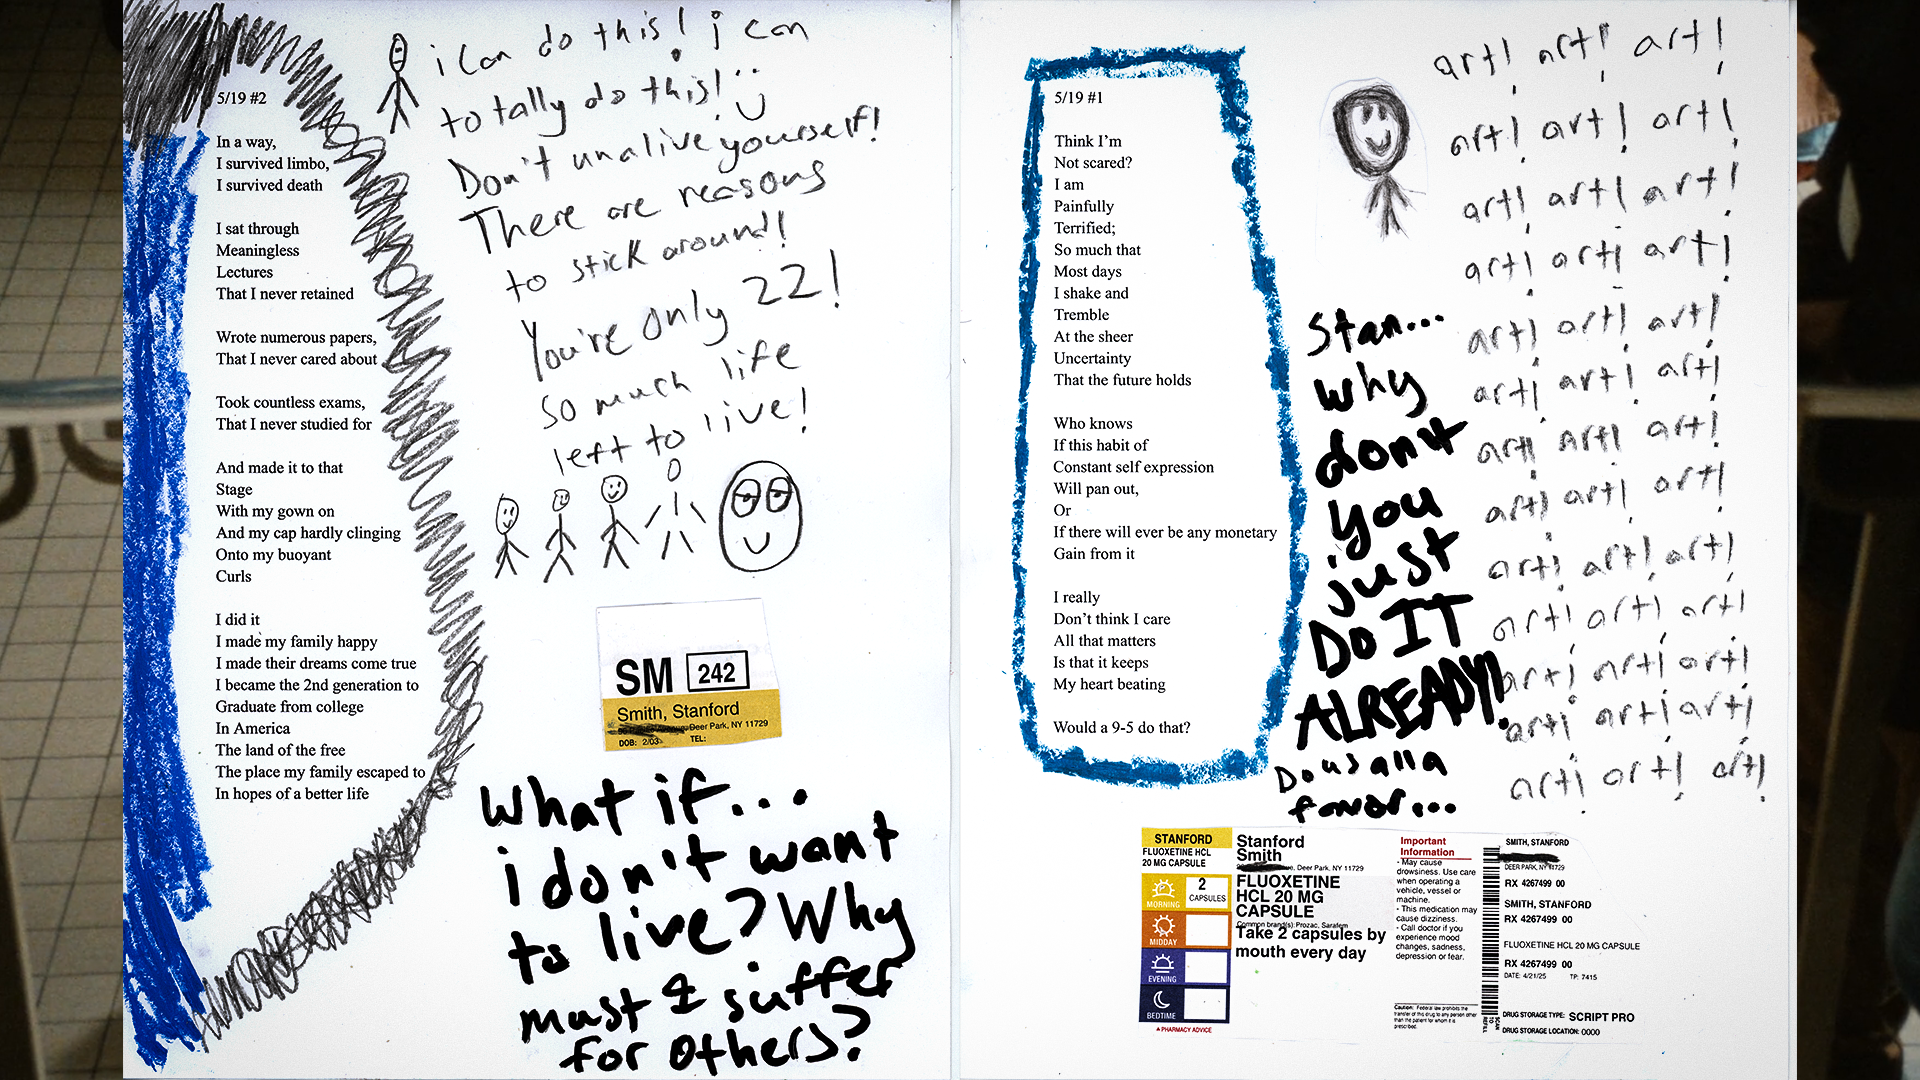 5/19 #2
In a way,
I survived limbo,
I survived death
I sat through
Meaningless
Lectures
That I never retained
Wrote numerous papers,
That I never cared about
Took countless exams,
That I never studied for
And made it to that
Stage
With my gown on
And my cap hardly clinging
Onto my buoyant
Curls
I did it
I made my family happy
I made their dreams come true
I became the 2nd generation to
Graduate from college
In America
The land of the free
The place my family escaped to
In hopes of a better life
i can do this! i can
totally do this!
Don't unalive yourself!
There are reasons
to stick around!
You're only 22!
so much life
left to live!
SM 242
Smith, Stanford
Deer Park, NY 11729
DOB: 2/03 TEL:
What if...
i don't want
to live? Why
must I suffer
for others?
5/19 #1
Think I'm
Not scared?
I am
Painfully
Terrified;
So much that
Most days
I shake and
Tremble
At the sheer
Uncertainty
That the future holds
Who knows
If this habit of
Constant self expression
Will pan out,
Or
If there will ever be any monetary
Gain from it
I really
Don't think I care
All that matters
Is that it keeps
My heart beating
Would a 9-5 do that?
art! art! art!
art! art! art!
art! art! art!
art! art! art!
art! art! art!
art! art! art!
art! art! art!
art! art! art!
art! art! art!
art! art! art!
art! art! art!
art! art! art!
art! art! art!
Stan...
why
don't
you
just
DO IT
ALREADY!
favor...
STANFORD
FLUOXETINE HCL
20 MG CAPSULE
MORNING
2
CAPSULES
MIDDAY
EVENING
BEDTIME
PHARMACY ADVICE
Stanford
Smith
Deer Park, NY 11729
FLUOXETINE
HCL 20 MG
CAPSULE
Common brand(s): Prozac, Sarafem
Take 2 capsules by
mouth every day
Important
Information
- May cause
drowsiness. Use care
when operating a
vehicle, vessel or
machine.
- This medication may
cause dizziness.
- Call doctor if you
experience mood
changes, sadness,
depression or fear.
Caution: Federal law prohibits the
transfer of this drug to any person other
than the patient for whom it is
prescribed.
SCAN
TO
REFILL
SMITH, STANFORD
DEER PARK, NY 11729
RX 4267499 00
SMITH, STANFORD
RX 4267499 00
FLUOXETINE HCL 20 MG CAPSULE
RX 4267499 00
DATE: 4/21/25 TP: 7415
DRUG STORAGE TYPE: SCRIPT PRO
DRUG STORAGE LOCATION: 0000